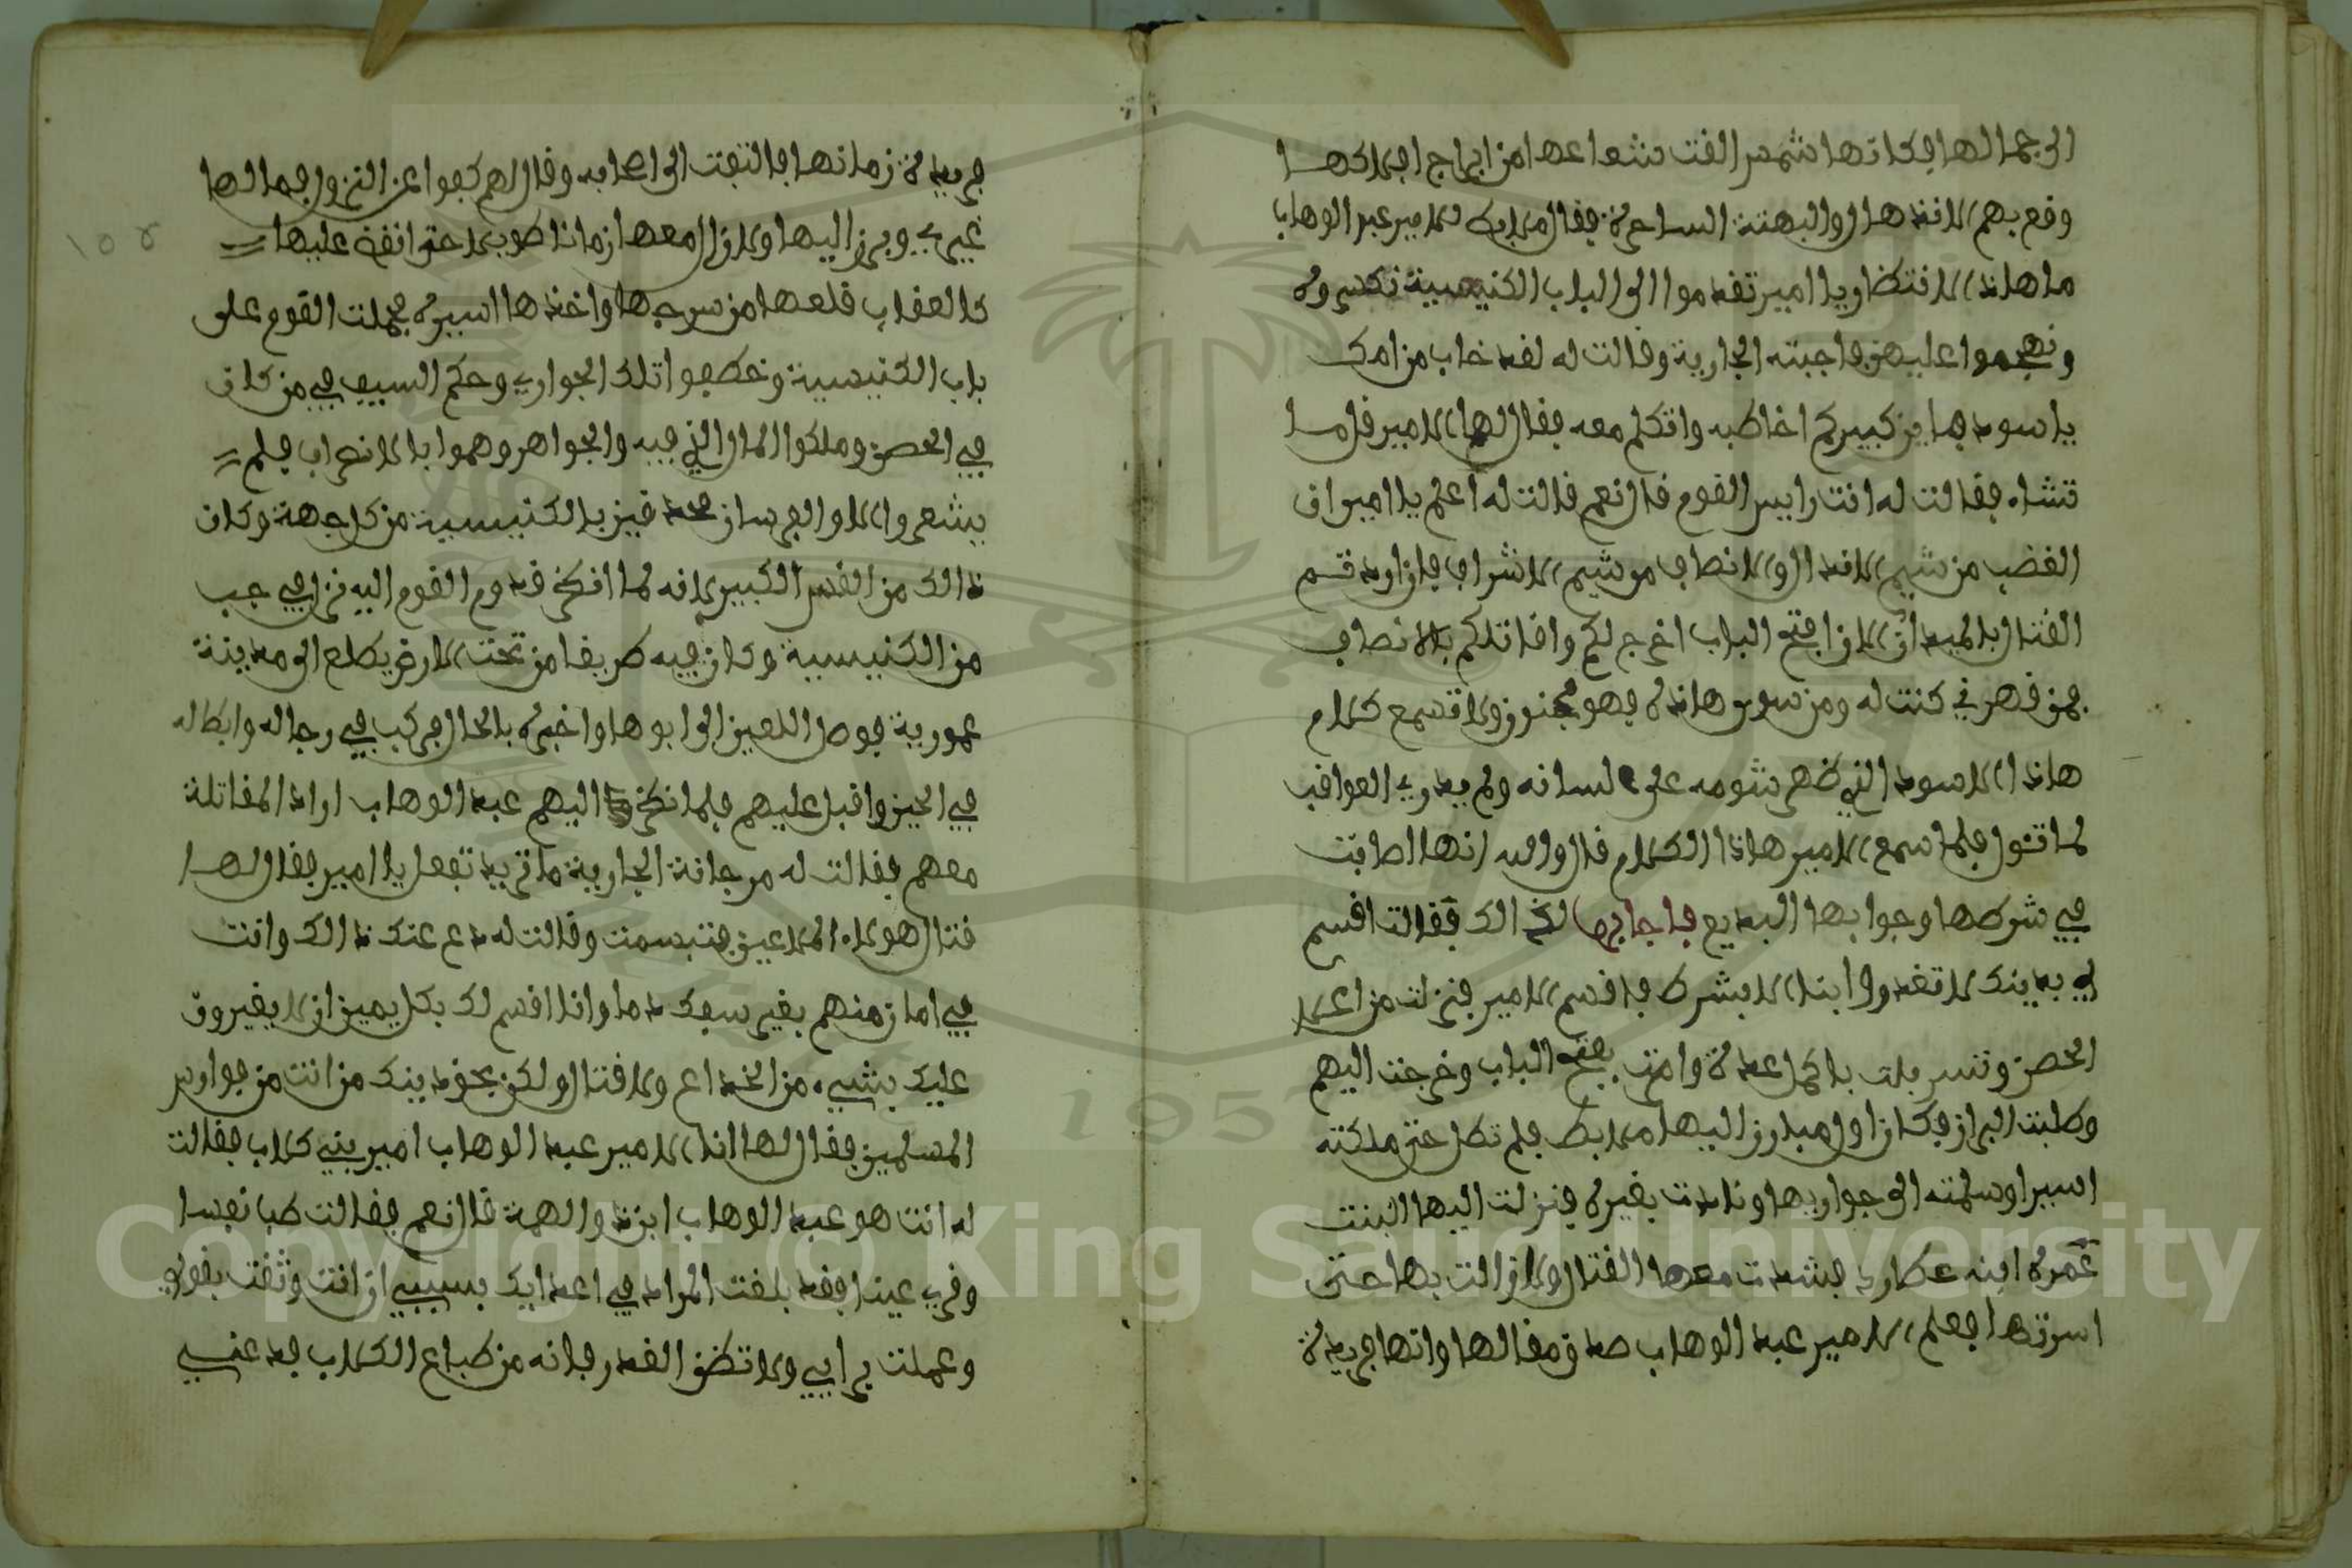 الى جمالها فكانها شمس القت شعاعها من ابراج افلاكها
وقع بهم الانذهال والبهتة الساحرة فقال ملابط للامير عبد الوهاب
ما هاذا الانتظار يا امير تقدموا الى الباب الكنيسية نكسروه
ونهجموا عليهن فاجبته الجارية وقالت له لقد خاب من امك
يا اسود فاين كبيركم اخاطبه واتكلم معه فقال لها الامير قل ما
تشاء فقالت له انت رايس القوم قال نعم قالت له اعلم يا امير ان
الغضب من شيم الانذال والانصاف من شيم الاشراف فان اردتم
القتال بالميدان الان افتح الباب اخرج لكم واقاتلكم بالانصاف
فمن قهرني كنت له ومن سوى هاذه فهو مجنون ولا تسمع كلام
هاذا الاسود الذي ظهر شومه على لسانه ولم يدري العواقب
لما تئول فلما سمع الامير هاذا الكلام قال والله انها اصابت
في شرطها وجوابها البديع فاجابها لذالك فقالت اقسم
لي بدينك لا تغدروا بنا الا بشرط فاقسم الامير فنزلت من اعلا
الحصن وتسربلت باكمل عدة وامرت بفتح الباب وخرجت اليهم
وطلبت البراز فكان اول مبارز اليها ملابط فلم تطل حتى ملكته
اسيرا وسلمته الى جواريها ونادت بغيره فنزلت اليها البنت
غمرة ابنه عطارد فشدت معها القتال ولازالت بها حتى
اسرتها فعلم الامير عبد الوهاب صدق مقالها وانها فريدة
فريدة زمانها فالتفت الى اصحابه وقال لهم كفوا عن النزول فما لها
غيري وبرز اليها ولازال معها زمانا طويلا حتى انقض عليها
كالعقاب قلعها من سرجها واخذها اسيره فحملت القوم على
باب الكنيسية وخطفوا تلك الجواري وحكم السيف في من كان
في الحصن وملكوا المال الذي فيه والجواهر وهموا بالانصراف فلم
يشعروا الا والفرسان محدقين بالكنيسية من كل جهة وكان
ذالك من القس الكبير لانه لما انظر قدوم القوم اليه نزل في جب
من الكنيسية وكان فيه طريقا من تحت الارض يطلع الى مدينة
عمورية فوصل اللعين الى ابوها واخبره بالحال فركب في رجاله وابطاله
في الحين واقبل عليهم فلما نظر اليهم عبد الوهاب اراد المقاتلة
معهم فقالت له مرجانة الجارية ما تريد تفعل يا امير فقال لها
قتال هولاء الملاعين فتبسمت وقالت له دع عنك ذالك وانت
في امان منهم بغير سفك دما وانا اقسم لك بكل يمين ان لا يغيرون
عليك بشيء من الخداع ولا قتال ولكن بحق دينك من انت من فوارس
المسلمين فقال لها انا الامير عبد الوهاب امير بني كلاب فقالت
له انت هو عبد الوهاب ابن ذو الهمة قال نعم فقالت طب نفسا
وقري عينا فقد بلغت المراد في اعدايك بسببي ان انت وثقت بقولي
وعملت برايي ولا تظن الغدر فانه من طباع الكلاب فدعني